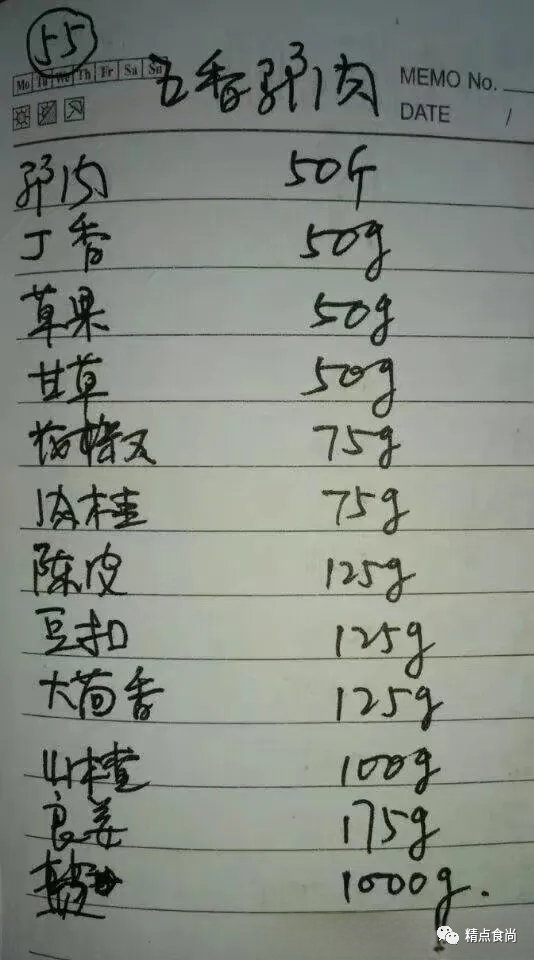 55
Mo Tu We Th Fr Sa Su
五香驴肉
MEMO No.
DATE /
驴肉 50斤
丁香 50g
草果 50g
甘草 50g
花椒 75g
肉桂 75g
陈皮 125g
豆扣 125g
大茴香 125g
山楂 100g
良姜 175g
1000g.
精点食尚